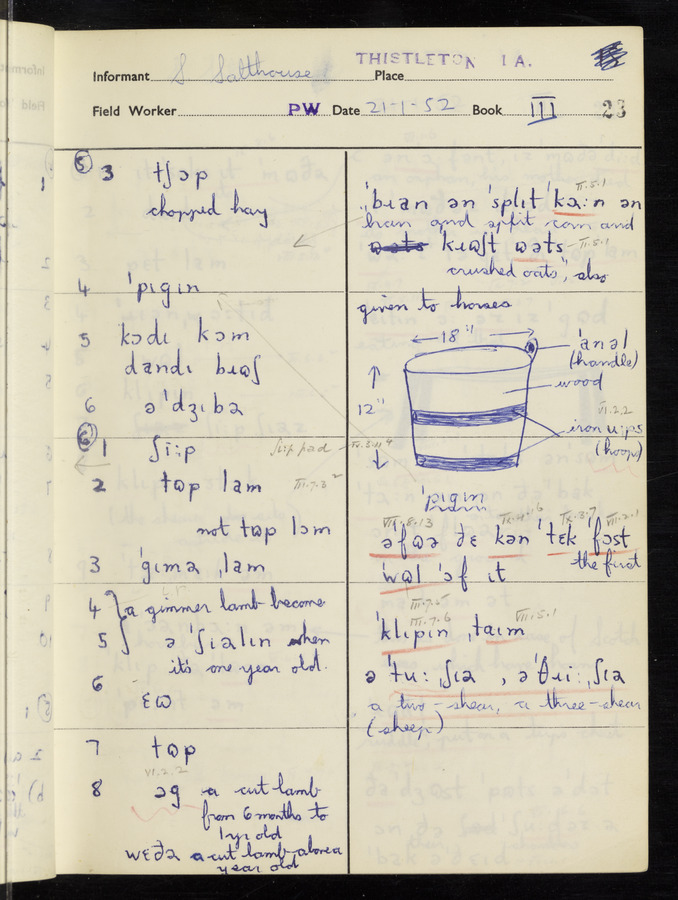 THISTLETON IA.
Informant S Salthouse Place
Field Worker PW Date 21-1-52 Book III 23
⑤ 3 tʃɒp
chopped hay
4 ˈpɪgɪn
5 kɔdɪ kɔm
dandɪ bɹɷʃ
6 ə ˈdʒɪbə
⑥ 1 ʃiːp
ʃiːp pad IV.3.11 4
2 tɷp lam III.7.3 2
not tɷp lɔm
3 ˈgɪmə ˌlam
4 a gimmer lamb become
5 ə ˈʃɪəlɪn when
it's one year old.
6 ɛɷ
7 tɷp
VI.2.2
8 ɔg a cut lamb
from 6 months to
1 yr old
wɛðə a cut lamb above a
year old
II.5.1
ˈbɪan ən ˈsplɪt ˈkɔːn ən
bran and split corn and
kɹɷʃt ɷəts II.5.1
crushed oats", also
given to horses
18"
ˈanəl
(handle)
wood
12"
VI.2.2
iron
(hoops)
ˈpɪgɪn
VII.8.13 IX.4.16 IX.3.7 VII.2.1
əfɷə ðɛ kən ˈtɛk fɔst
the first
ˈwɷl ˈɔf ɪt
III.7.5
III.7.6 VII.5.1
ˈklɪpɪn ˌtaɪm
ə ˈtuː ˌʃɪə , ə ˈθɹiː ˌʃɪə
a two-shear, a three-shear
(sheep)